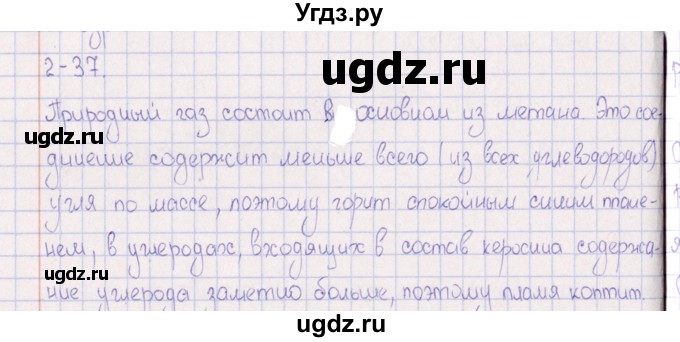 Угдз.ру
2-37.
ugdz.ru
Природный газ состоит в основном из метана. Это сое-
ugdz.ru
динение содержит меньше всего (из всех углеводородов)
угля по массе, поэтому горит спокойным синим пламе-
нем, в углеродах, входящих в состав керосина содержа-
ugdz.ru
ние углерода заметно больше, поэтому пламя коптит.
ugdz.ru